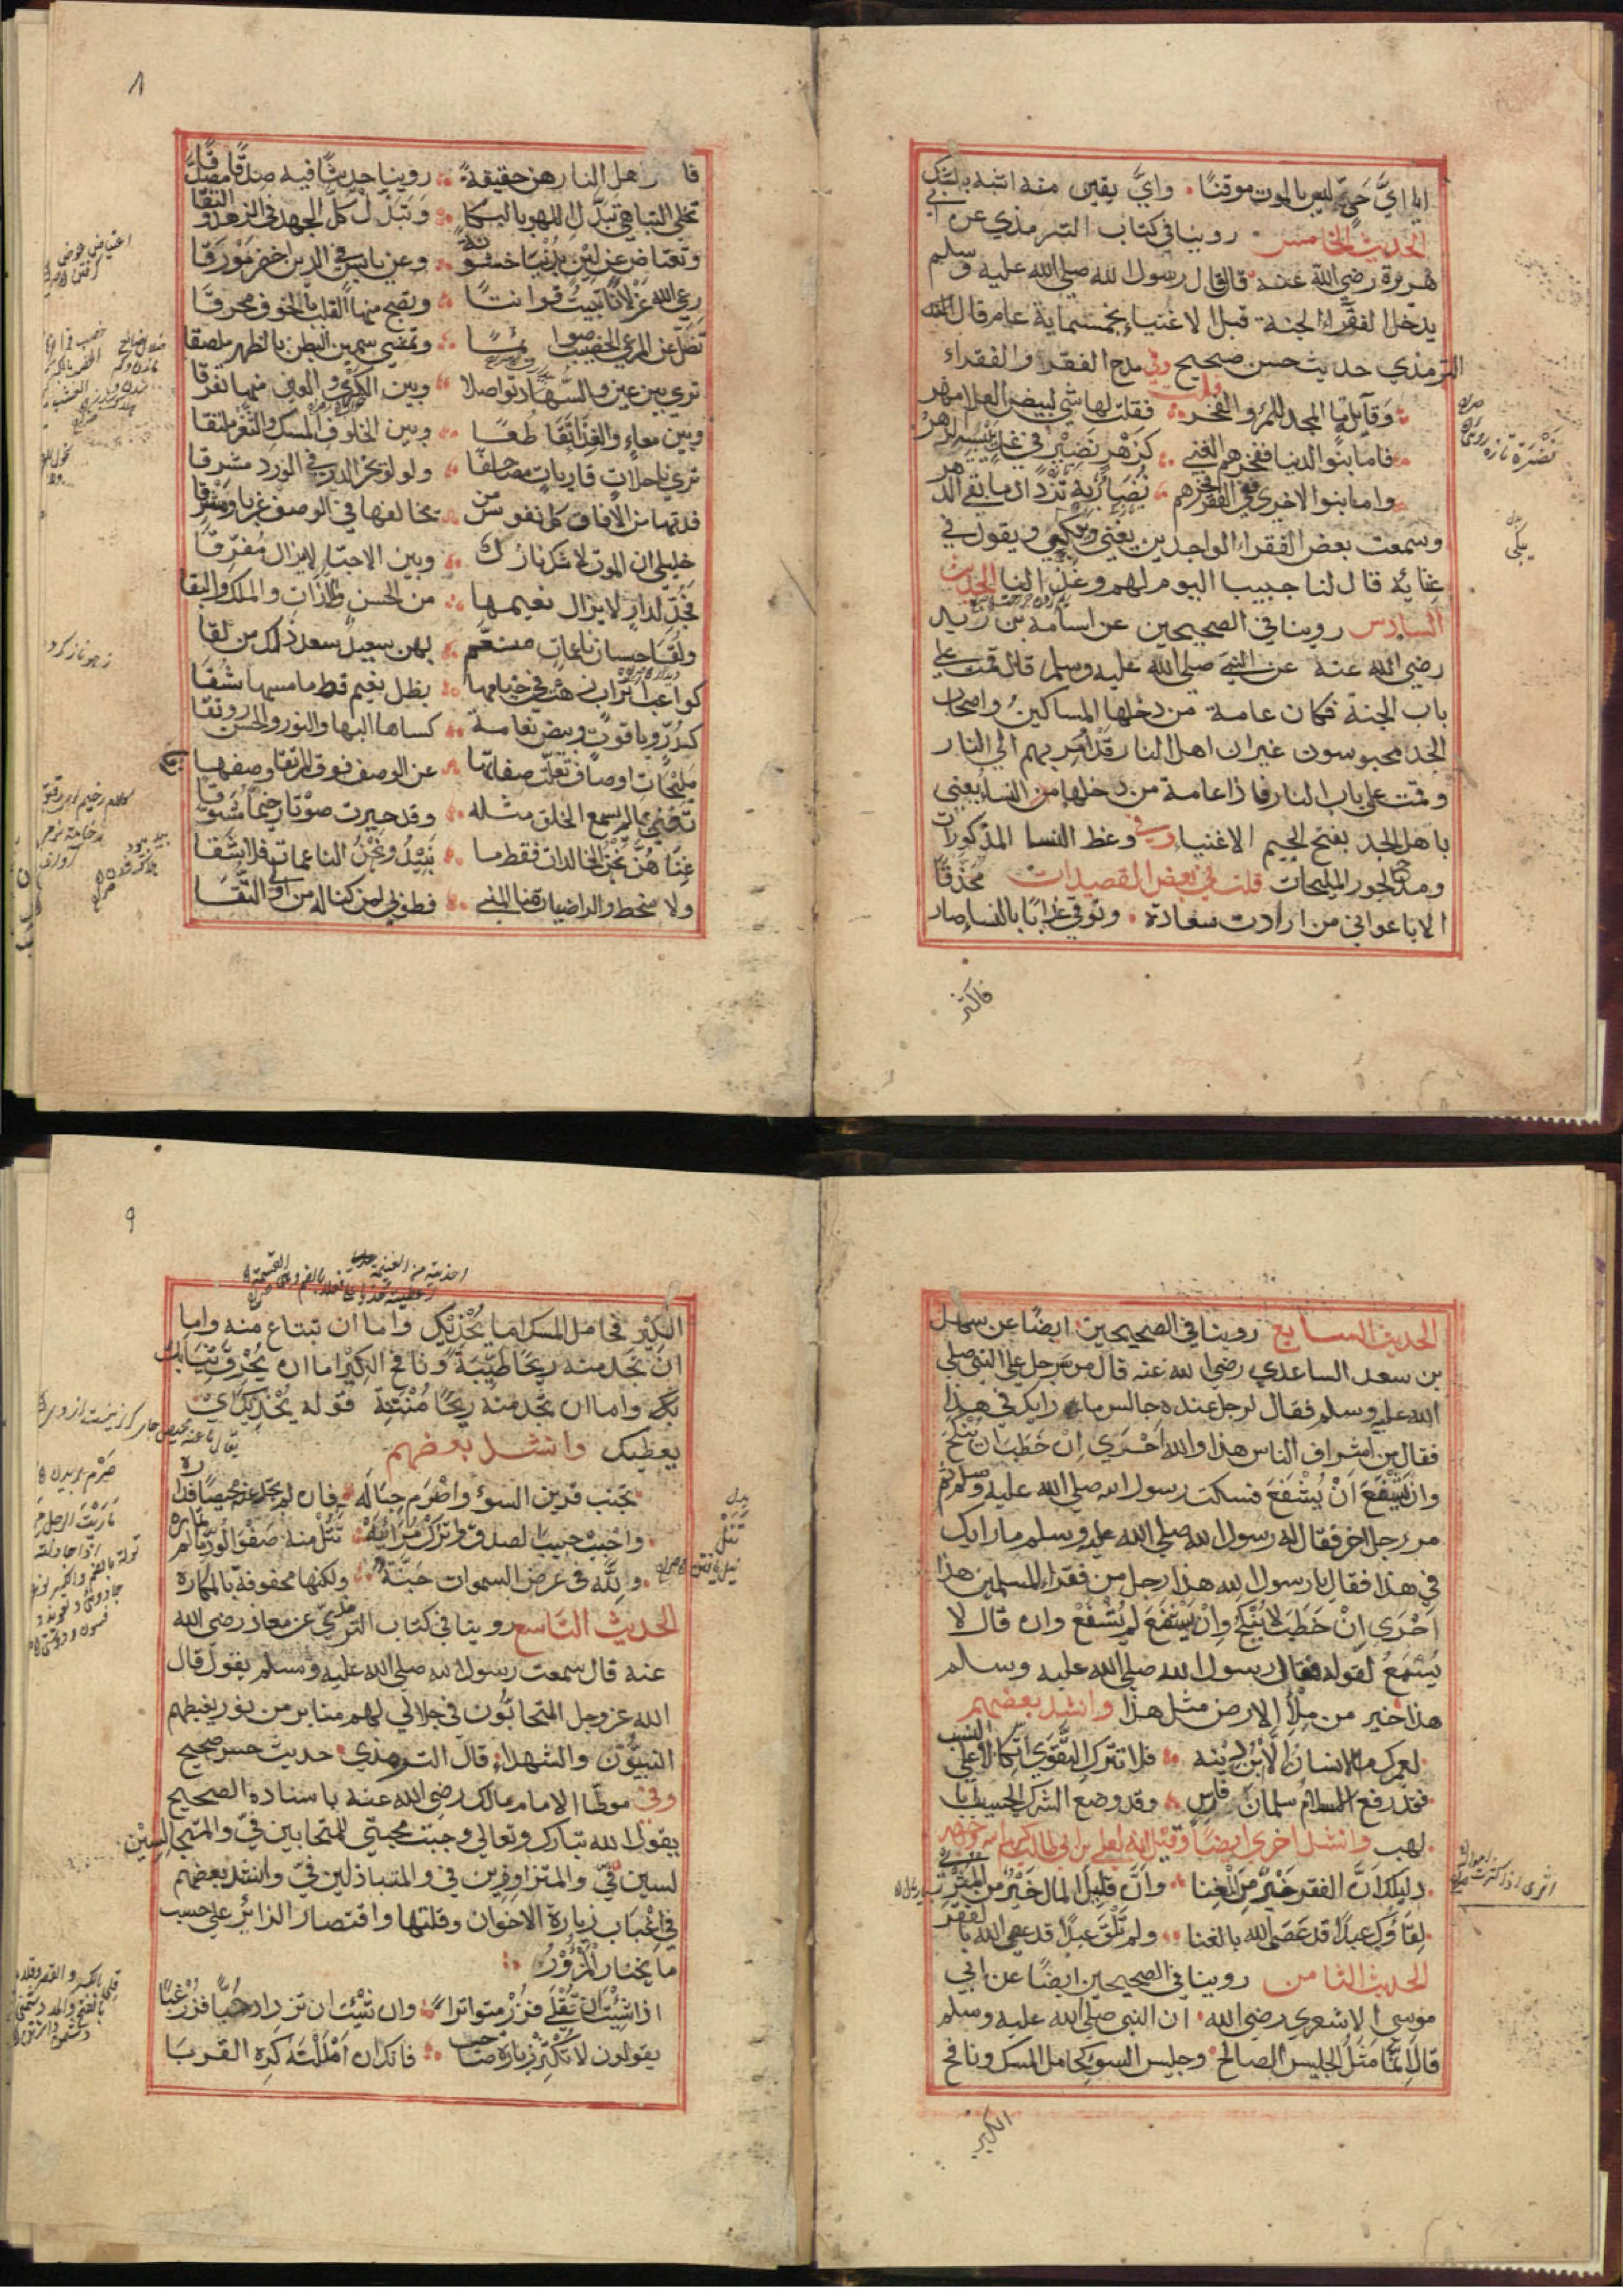 ايا ايّ حيّ ليس بالموت موقنًا وايّ يقين منه اشبه بالشك
الحديث الخامس روينا في كتاب الترمذي عن ابي
هريرة رضي الله عنه قال قال رسول الله صلي الله عليه وسلم
يدخل الفقراء الجنة قبل الاغنياء بخمسمائة عام قال
الترمذي حديث حسن صحيح وفي مدح الفقر والفقراء
قلت
وقائلة ما المجد للمرء والفخر فقلت لها شي لبيض العلا مهر
فاما بنوا الدنيا ففخرهم الغني كزهر نضير في غد ييبس الزهر
واما بنوا الاخري ففي الفقر فخرهم نضارته تزداد ما بقي الدهر
وسمعت بعض الفقراء الواجدين يغني ويبكي ويقول في
غنائه قال لنا حبيبنا اليوم لهم وغد لنا الحديث
السادس روينا في الصحيحين عن اسامة بن زيد
رضي الله عنه عن النبي صلي الله عليه وسلم قال قمت علي
باب الجنة فكان عامة من دخلها المساكين واصحاب
الجد محبوسون غير ان اهل النار قد امر بهم الي النار
وقمت علي باب النار فاذا عامة من دخلها من النساء يعني
باهل الجد بفتح الجيم الاغنياء وفي وعظ النسا المذكورات
ومدح الحور المليحات قلت في بعض القصيدات
الا يا غواني من ارادت سعادة وتوقي عذابًا بالنساء صار محدقًا
فاكثر
٨
فاكثر اهل النار هن حقيقة روينا حديثًا فيه صدقًا مصدقًا
تخلي التباهي تبدل اللهو بالبكا وتبذل كل الجهد في الزهد والتقا
وتعتاض عن لين بدنيا خشونة وعن يابس في الدين اخضر مورقا
رعي الله غزلانًا تبيت قوانتًا وتصبح منها القلب بالخوف محرقا
تظل عن المرعي الخصيب صوائمًا وتمسي سمين البطن بالظهر ملصقا
تري بين عين والسهاد تواصلا وبين الكري والعين منها تفرقا
وبين معاء والغذا تقاطعًا وبين الخلوف المسك والثغر ملتقا
تري ناحلات قاريات مصاحفًا ولولو بحر الدر في الورد مشرقا
فديتها من الافاق كل نفوس من تخالفها في الوصف غربا ومشرقا
خليلي ان الموت لا شك نازل وبين الاحبا لا يزال مفرقا
فجد لدار لا يزال نعيمها من الحسن واللذات والملك والبقا
ولقيا حسان ناعمات منعم بهن سعيد سعد ذلك من لقا
كواعب اتراب زهت في خيامها بظل نعيم قط ما مسها شقا
كدر وياقوت وبيض نعامة كساها البها والنور والحسن رونقا
مليحات اوصاف تعلت صفاتها عن الوصف فوق المرتقا وصفها
تغني بما لم يسمع الخلق مثله وقد حيرت صوتا رخيمًا مشوقا
غناهن نحن الخالدات فقط ما نبيد ونحن الناعمات فلا شقا
ولا سخط والراضيات بنا المني فطوبي لمن كنا له من اولي التقا
الحديث السابع روينا في الصحيحين ايضًا عن سهل
بن سعد الساعدي رضي الله عنه قال مر رجل علي النبي صلي
الله عليه وسلم فقال لرجل عنده جالس ما رايك في هذا
فقال من اشراف الناس هذا والله احري ان خطب ان ينكح
وان يشفع ان يشفع فسكت رسول الله صلي الله عليه وسلم ثم
مر رجل اخر فقال له رسول الله صلي الله عليه وسلم ما رايك
في هذا فقال يا رسول الله هذا رجل من فقراء المسلمين هذا
احري ان خطب لا ينكح وان يشفع لم يشفع وان قال لا
يسمع لقوله فقال رسول الله صلي الله عليه وسلم
هذا خير من ملأ الارض مثل هذا وانشد بعضهم
لعمرك ما الانسان الا بن دينه فلا تترك التقوي اتكالا علي النسب
فقد رفع الاسلام سلمان فارس وقد وضع الشرك الحسيب ابا
لهب وانشد اخري ايضًا وقيل انه لعلي بن ابي طالب
دليلك ان الفقر خير من الغنا وان قليل المال خير من المثري
لقاؤك عبدًا قد عصي الله بالغنا ولم تلق عبدًا قد عصي الله بالفقر
الحديث الثامن روينا في الصحيحين ايضًا عن ابي
موسي الاشعري رضي الله ان النبي صلي الله عليه وسلم
قال انما مثل الجليس الصالح وجليس السوء كحامل المسك ونافخ
الكير
٩
الكير فحامل المسك اما يحذيك واما ان تبتاع منه واما
ان تجد منه ريحًا طيبة ونافخ الكير اما ان يحرق ثيابك
واما ان تجد منه ريحًا منتنة قوله يحذيك اي
يعطيك وانشد بعضهم
تجنب قرين السوء واصرم حباله فان لم تجد عنه محيصًا فداره
واحبب حبيب الصدق واترك مراءه تنل منه صفو الود ما لم تماره
ولله في عرض السموات جنة ولكنها محفوفة بالمكاره
الحديث التاسع روينا في كتاب الترمذي عن معاذ رضي الله
عنه قال سمعت رسول الله صلي الله عليه وسلم يقول قال
الله عز وجل المتحابون في جلالي لهم منابر من نور يغبطهم
النبيون والشهداء قال الترمذي حديث حسن صحيح
وفي موطا الامام مالك رضي الله عنه باسناده الصحيح
يقول الله تبارك وتعالي وجبت محبتي للمتحابين في والمتجا
لسين في والمتزاورين في والمتباذلين في وانشد بعضهم
في اغباب زيارة الاخوان وقلتها واقتصار الزائر علي حسب
ما يختار المزور
اذا شئت ان تقلي فزر متواترا وان شئت ان تزداد حبًا فزر غبًا
يقولون لا تكثر زيارة صاحب فانك ان امللته كره القربا